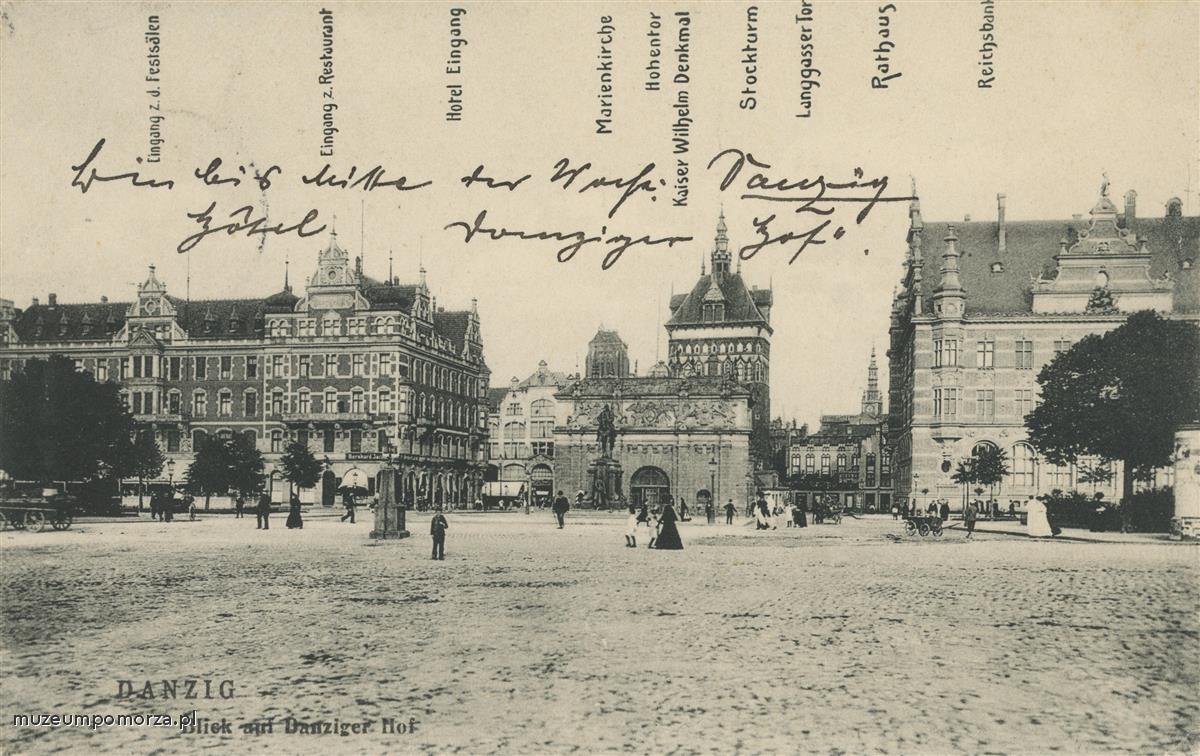 Eingang z. d. Festsälen
Eingang z. Restaurant
Hotel Eingang
Marienkirche
Hohentor
Kaiser Wilhelm Denkmal
Stockturm
Langgasser Tor
Rathaus
Reichsbank
Bin bis Mitte der Woche: Danzig
Hôtel Danziger Hof".
DANZIG
Blick auf Danziger Hof
muzeumpomorza.pl